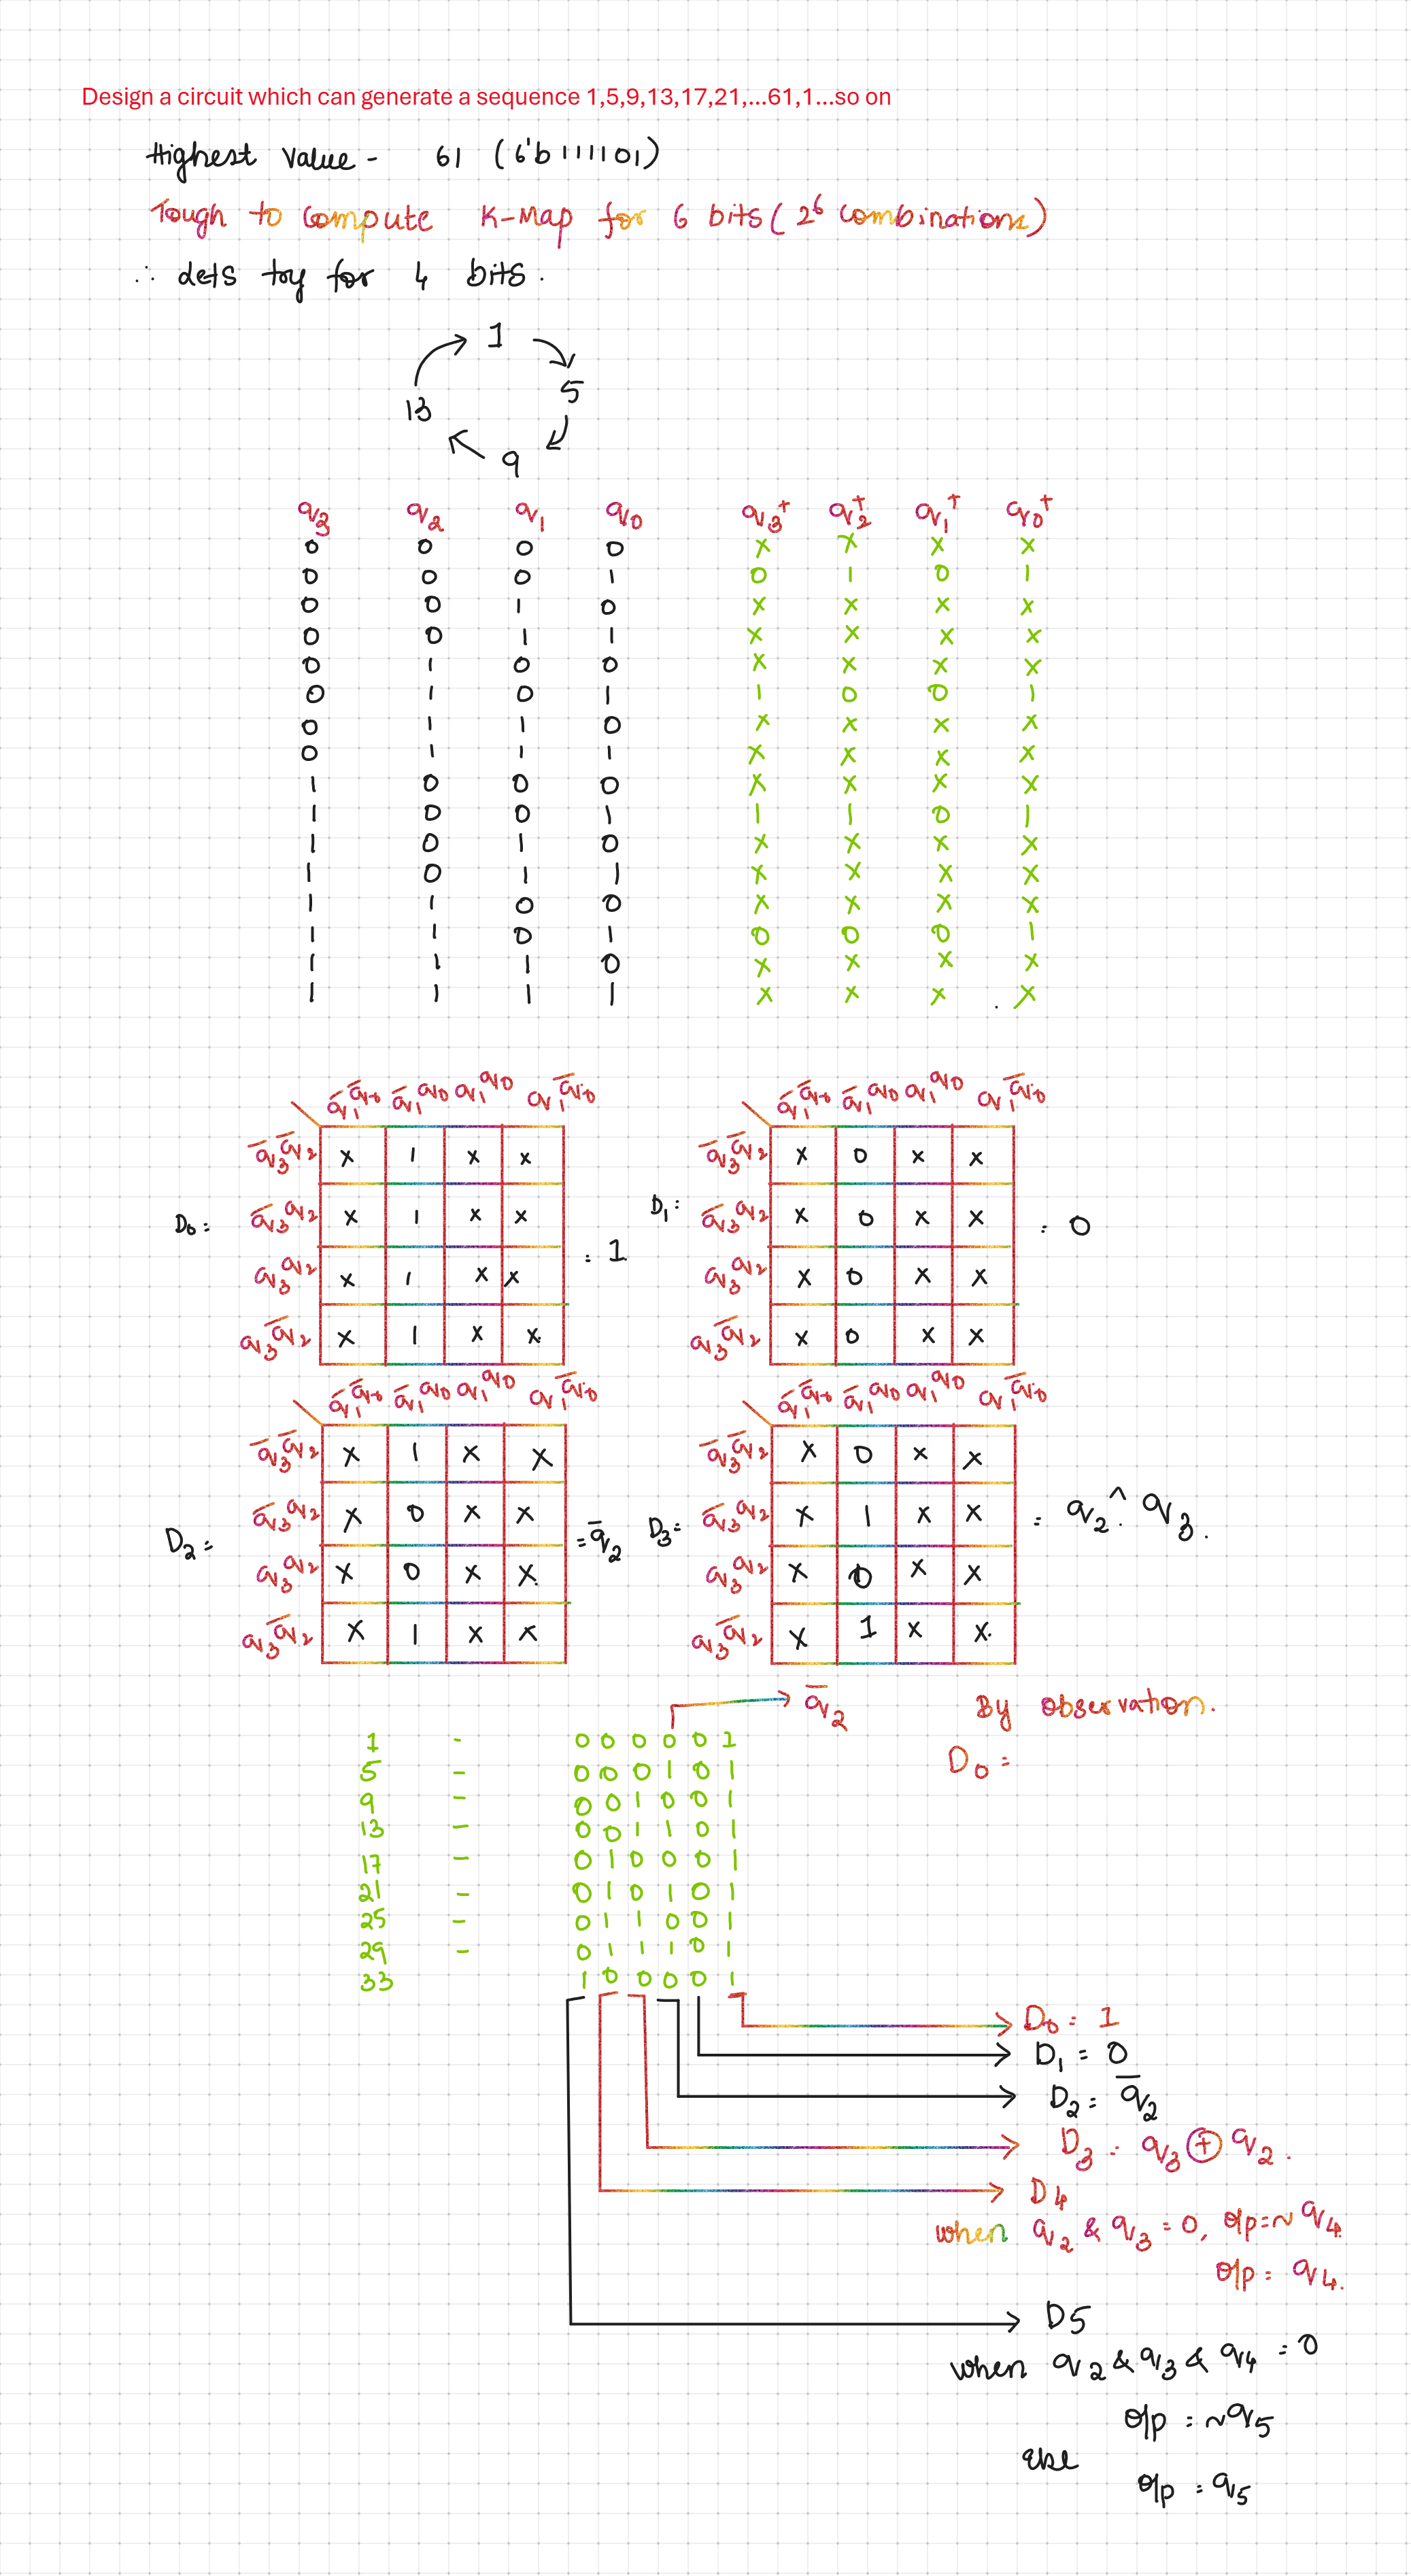 Design a circuit which can generate a sequence 1,5,9,13,17,21,...61,1...so on
Highest Value - 61 (6'b111101)
Tough to Compute K-Map for 6 bits(2⁶ Combinations)
∴ Lets try for 4 bits.
1
5
13
9
q₃ q₂ q₁ q₀ q₃⁺ q₂⁺ q₁⁺ q₀⁺
0 0 0 0 x x x x
0 0 0 1 0 1 0 1
0 0 1 0 x x x x
0 0 1 1 x x x x
0 1 0 0 x x x x
0 1 0 1 1 0 0 1
0 1 1 0 x x x x
0 1 1 1 x x x x
1 0 0 0 x x x x
1 0 0 1 1 1 0 1
1 0 1 0 x x x x
1 0 1 1 x x x x
1 1 0 0 x x x x
1 1 0 1 0 0 0 1
1 1 1 0 x x x x
1 1 1 1 x x x x
q̅₁q̅₀ q̅₁q₀ q₁q₀ q₁q̅₀
D₀ =
q̅₃q̅₂ x 1 x x
q̅₃q₂ x 1 x x
q₃q₂ x 1 x x
q₃q̅₂ x 1 x x
= 1
q̅₁q̅₀ q̅₁q₀ q₁q₀ q₁q̅₀
D₁ =
q̅₃q̅₂ x 0 x x
q̅₃q₂ x 0 x x
q₃q₂ x 0 x x
q₃q̅₂ x 0 x x
= 0
q̅₁q̅₀ q̅₁q₀ q₁q₀ q₁q̅₀
D₂ =
q̅₃q̅₂ x 1 x x
q̅₃q₂ x 0 x x
q₃q₂ x 0 x x
q₃q̅₂ x 1 x x
= q̅₂
q̅₁q̅₀ q̅₁q₀ q₁q₀ q₁q̅₀
D₃ =
q̅₃q̅₂ x 0 x x
q̅₃q₂ x 1 x x
q₃q₂ x 0 x x
q₃q̅₂ x 1 x x
= q₂ ^ q₃.
q̅₂
By observation.
D₀ =
1 - 0 0 0 0 0 1
5 - 0 0 0 1 0 1
9 - 0 0 1 0 0 1
13 - 0 0 1 1 0 1
17 - 0 1 0 0 0 1
21 - 0 1 0 1 0 1
25 - 0 1 1 0 0 1
29 - 0 1 1 1 0 1
33 1 0 0 0 0 1
D₀ = 1
D₁ = 0
D₂ = q̅₂
D₃ = q₃ ⊕ q₂.
D4
when q₂ & q₃ = 0, o/p=~q₄
o/p = q₄.
D5
when q₂ & q₃ & q₄ = 0
o/p = ~q₅
else
o/p = q₅